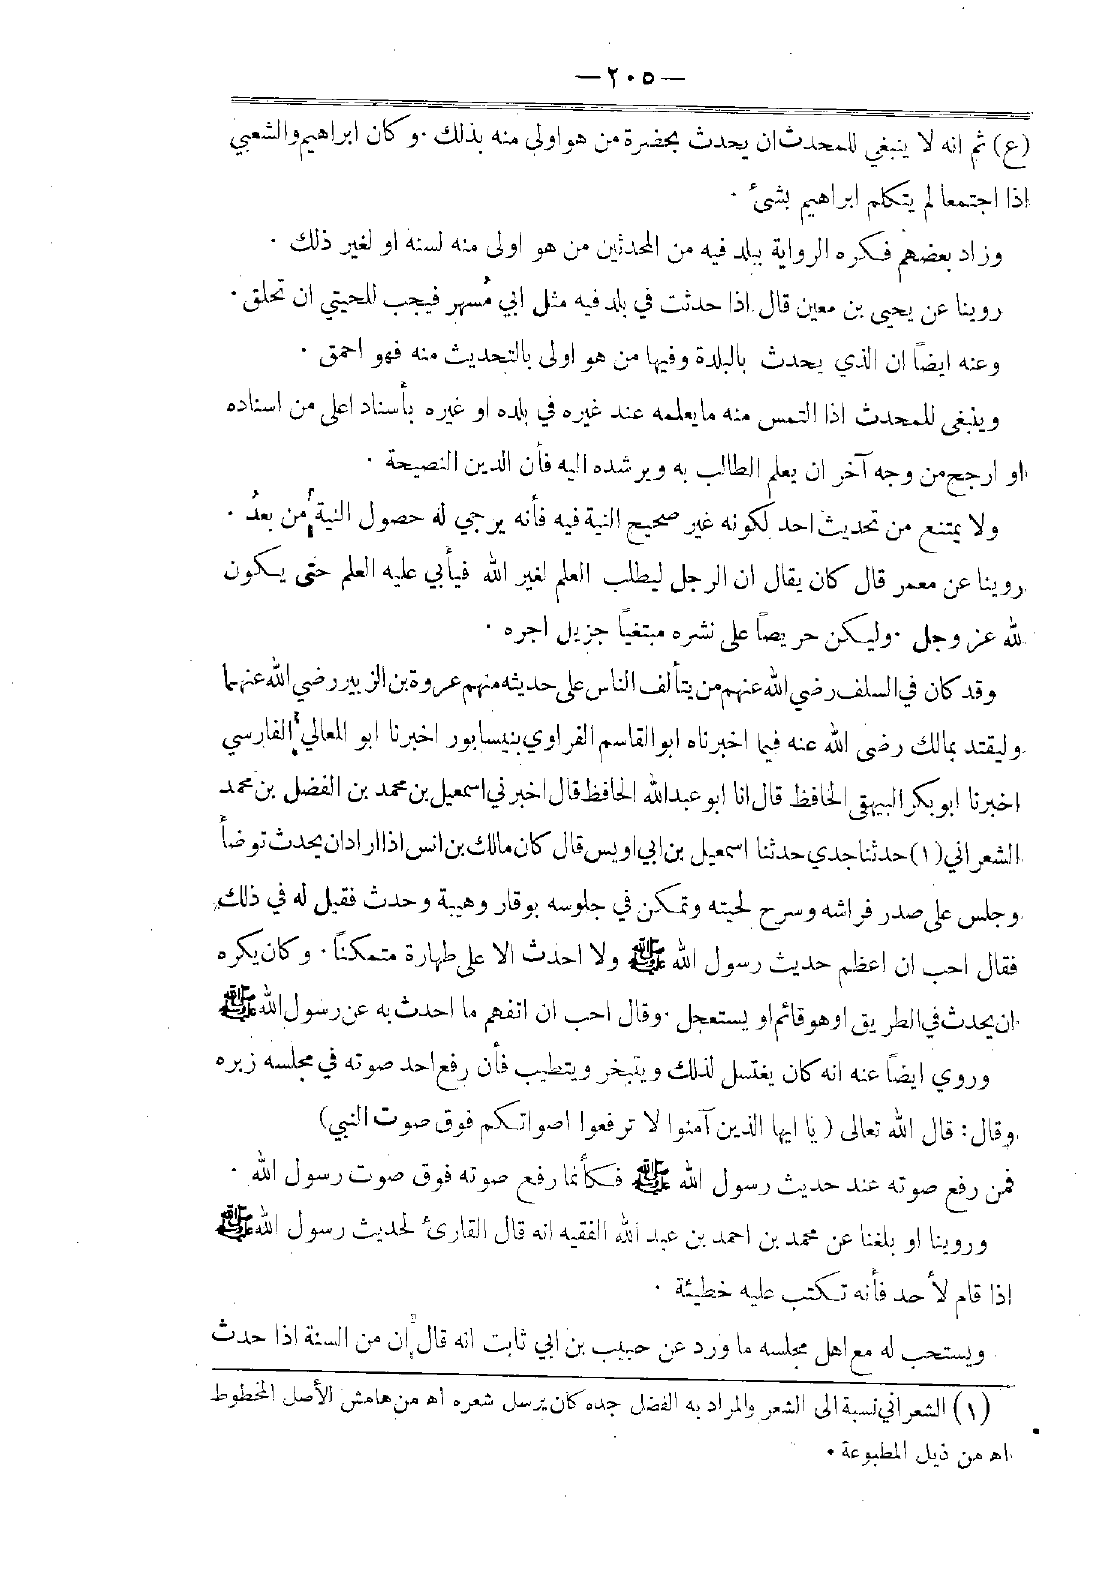 —٢٠٥—
(ع) ثم انه لا ينبغي للمحدث ان يحدث بحضرة من هو اولى منه بذلك ٠ وكان ابراهيم والشعبي
اذا اجتمعا لم يتكلم ابراهيم بشئ ٠
وزاد بعضهم فكره الرواية ببلد فيه من المحدثين من هو اولى منه لسنه او لغير ذلك ٠
روينا عن يحيى بن معين قال اذا حدثت في بلد فيه مثل ابي مُسهر فيجب للحيتي ان تحلق ٠
وعنه ايضاً ان الذي يحدث بالبلدة وفيها من هو اولى بالتحديث منه فهو احمق ٠
وينبغى للمحدث اذا التمس منه ما يعلمه عند غيره في بلده او غيره بأسناد اعلى من اسناده
او ارجح من وجه آخر ان يعلم الطالب به ويرشده اليه فأن الدين النصيحة ٠
ولا يمتنع من تحديث احد لكونه غير صحيح النية فيه فأنه يرجي له حصول النية من بعدُ ٠
روينا عن معمر قال كان يقال ان الرجل ليطلب العلم لغير الله فيأبي عليه العلم حتى يكون
لله عز وجل ٠ وليكن حريصاً على نشره مبتغياً جزيل اجره ٠
وقد كان في السلف رضي الله عنهم من يتألف الناس على حديثه منهم عروة بن الزبير رضي الله عنهما
وليقتد بمالك رضى الله عنه فيما اخبرناه ابو القاسم الفراوي بنيسابور اخبرنا ابو المعالي الفارسي
اخبرنا ابو بكر البيهقي الحافظ قال انا ابو عبد الله الحافظ قال اخبرني اسمعيل بن محمد بن الفضل بن محمد
الشعراني (١) حدثنا جدي حدثنا اسمعيل بن ابي اويس قال كان مالك بن انس اذا اراد ان يحدث توضأ
وجلس على صدر فراشه وسرح لحيته وتمكن في جلوسه بوقار وهيبة وحدث فقيل له في ذلك
فقال احب ان اعظم حديث رسول الله ﷺ ولا احدث الا على طهارة متمكناً ٠ وكان يكره
ان يحدث في الطريق او هو قائم او يستعجل ٠ وقال احب ان اتفهم ما احدث به عن رسول الله ﷺ
وروي ايضاً عنه انه كان يغتسل لذلك ويتبخر ويتطيب فأن رفع احد صوته في مجلسه زبره
وقال: قال الله تعالى ( يا ايها الذين آمنوا لا ترفعوا اصواتكم فوق صوت النبي)
فمن رفع صوته عند حديث رسول الله ﷺ فكأنما رفع صوته فوق صوت رسول الله ٠
وروينا او بلغنا عن محمد بن احمد بن عبد الله الفقيه انه قال القارئ لحديث رسول الله ﷺ
اذا قام لأحد فأنه تكتب عليه خطيئة ٠
ويستحب له مع اهل مجلسه ما ورد عن حبيب بن ابي ثابت انه قال إن من السنة اذا حدث
(١) الشعراني نسبة الى الشعر والمراد به الفضل جده كان يرسل شعره اه من هامش الأصل المخطوط
اه من ذيل المطبوعة ٠